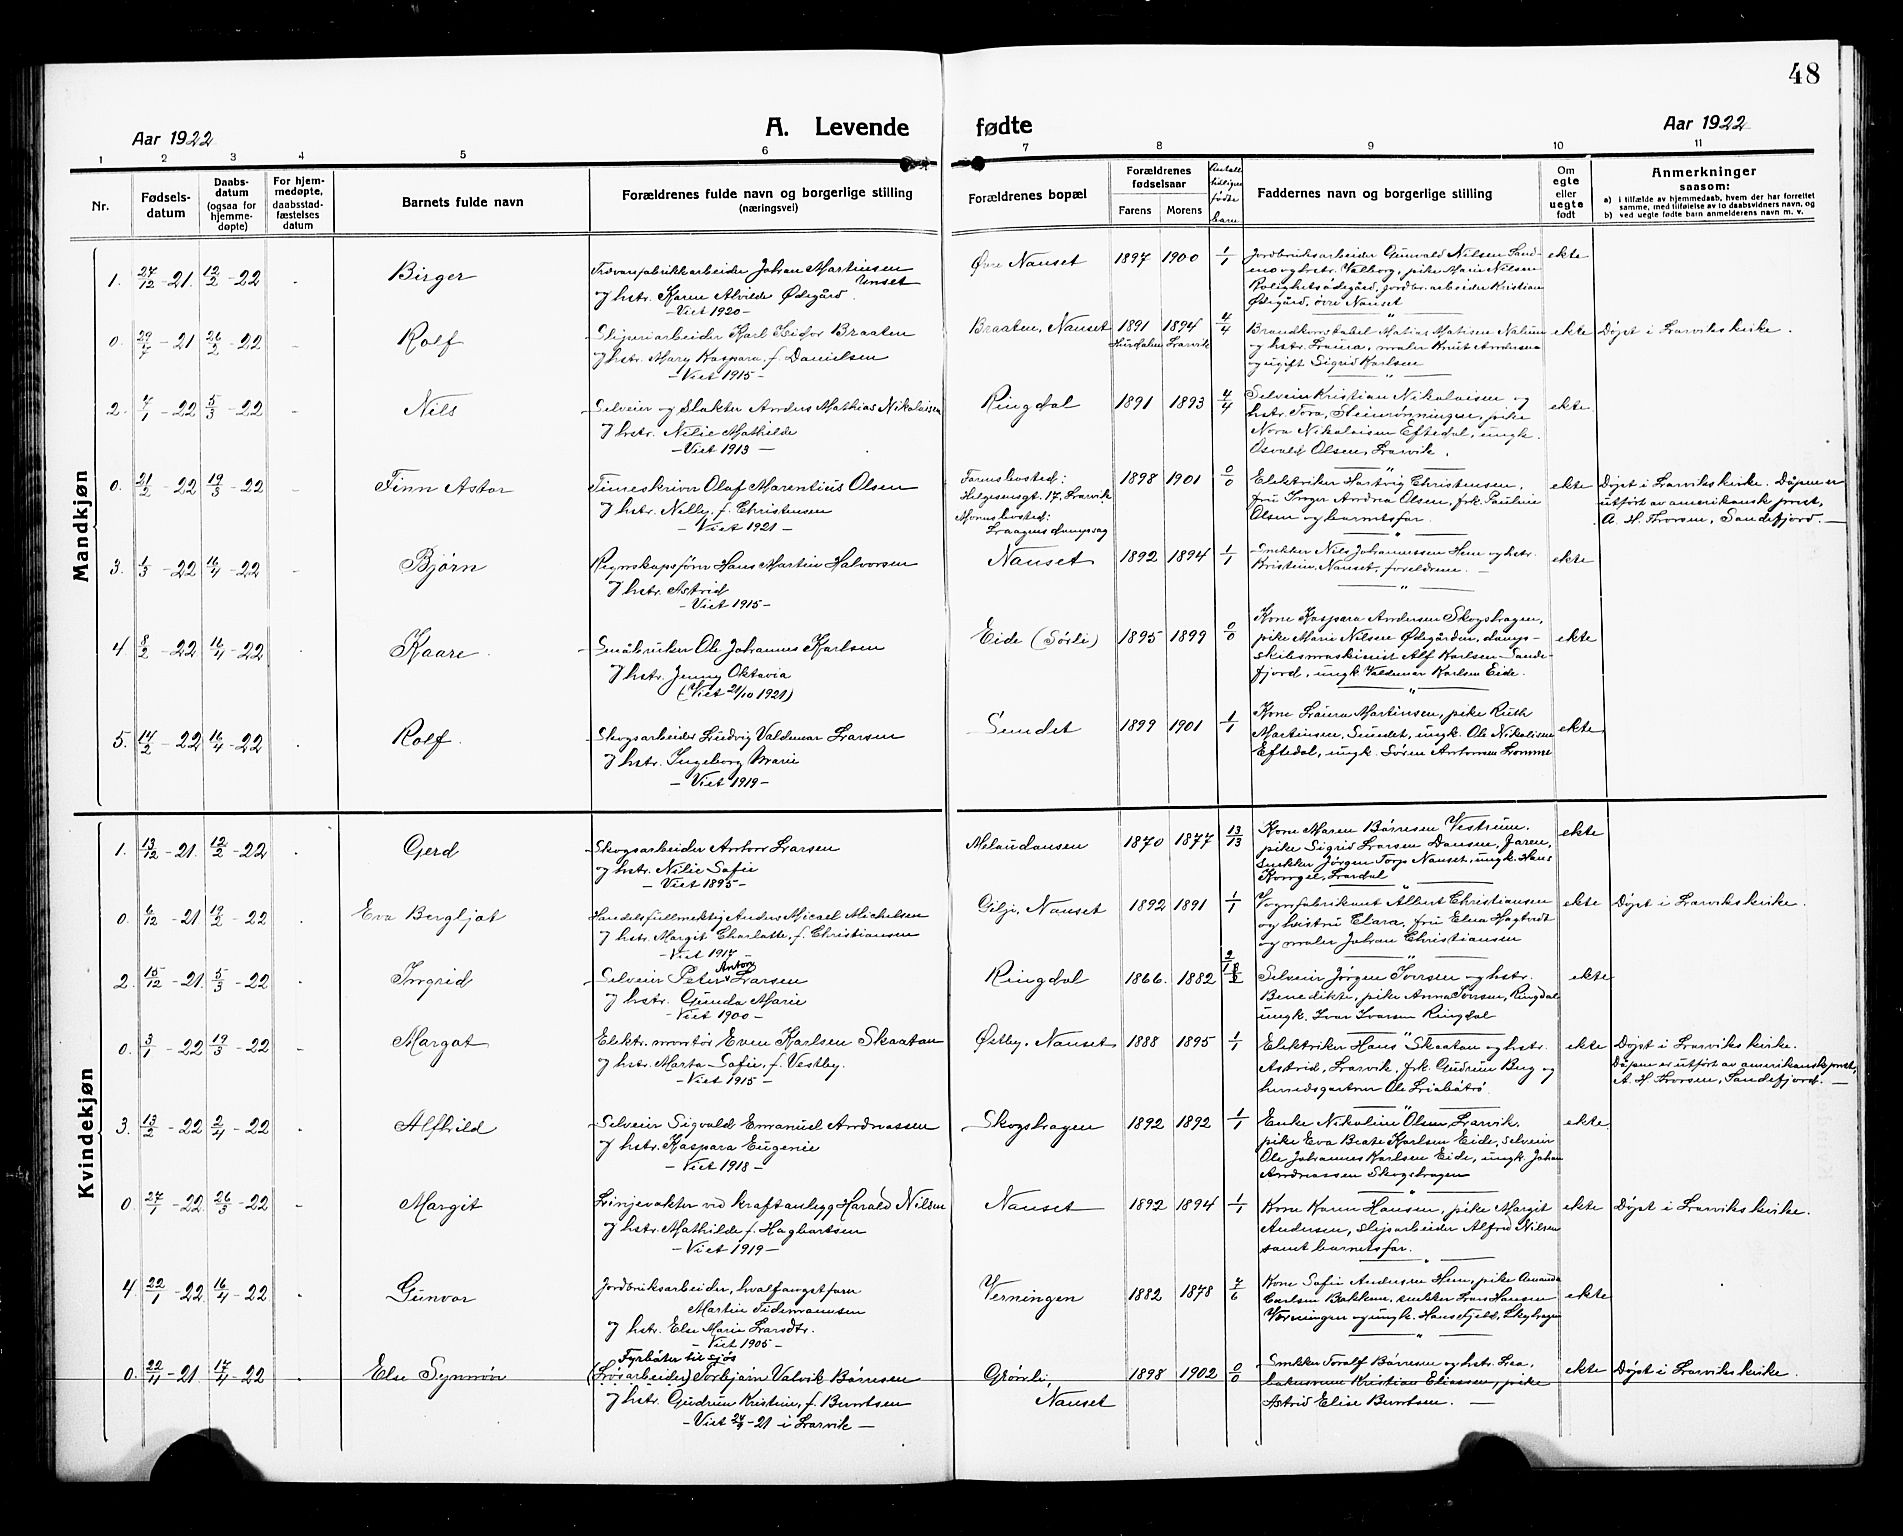 48
Aar 1922
A. Levende fødte
Aar 1922
1 2 3 4 5 6 7 8 9 10 11
Nr.
Fødsels-
datum
Daabs-
datum
(ogsaa for
hjemme-
døpte)
For hjem-
medøpte,
daabsstad-
fæstelses
datum
Barnets fulde navn
Forældrenes fulde navn og borgerlige stilling
(næringsvei)
Forældrenes bopæl
Forældrenes
fødselsaar
Farens Morens
Antall
tidligere
fødte
barn
Faddernes navn og borgerlige stilling
Om
egte
eller
uegte
født
Anmerkninger
saasom:
a) i tilfælde av hjemmedaab, hvem der har forrettet
samme, med tilføielse av to daabsvidners navn, og
b) ved uegte fødte barn anmelderens navn m. v.
Mandkjøn
1. 27/12-21. 12/2-22 - Birger
Trævarefabrikkarbeider Johan Martinsen
Unset
og hstr. Karen Alvilde Ødegård.
-Viet 1920-
Øvre Nanset 1897 1900 1/1
Jordbruksarbeider Gunvald Nilsen Sand-
mo og hstr. Valborg, pike Marie Nilsen
Rolighetsødegård, jordbr. arbeider Kristian
Ødegård, øvre Nanset
ekte
0. 29/7-21 26/2-22 - Rolf
Sliperiarbeider Karl Isidor Braaten
og hstr. Mary Kaspara, f. Danielsen
-Viet 1915-
Braaten, Nanset 1891 1894 4/4
Hurdalen Larvik
Brandkonstabel Matias Matisen Nalum
og hstr. Laura, maler Knut Andersen
og ugift Sigrid Karlsen
ekte Døpt i Larviks kirke.
2. 4/1-22 5/3-22 - Nils
Selveier og slakter Anders Mathias Nikolaisen
og hstr. Nilie Mathilde
-Viet 1913-
Ringdal 1891 1893 4/4
Selveier Kristian Nikolaisen og
hstr. Tora, Steinsrønningen, pike
Nora Nikolaisen Eftedal, ungk.
Osvald Olsen, Larvik.
ekte
0. 21/2-22 19/3-22 - Finn Astor
Timeskriver Olaf Marentius Olsen
og hstr. Nelly, f. Christensen
-Viet 1921-
Farens bosted:
Helgesensgt. 17, Larvik
Morens bosted:
Laagens dampsag
1898 1901 0/0
Elektriker Hartvig Christensen,
fru Inger Andrea Olsen, frk. Pauline
Olsen og barnets far.
ekte Døpt i Larviks kirke. Dåpen er
utført av amerikansk prest,
A. H. Thorsen, Sandefjord.
3. 1/3-22 16/4-22 - Bjørn
Regnskapsfører Hans Martin Halvorsen
og hstr. Astrid
-Viet 1915-
Nanset 1892 1894 1/1
Snekker Nils Johannessen Hem og hstr.
Kristine, Nanset, foreldrene.
ekte
4 8/2-22 16/4-22 - Kaare.
Småbruker Ole Johannes Karlsen
og hstr. Jenny Oktavia
(Viet 21/10 1921)
Eide (Sørli) 1895 1899 0/0
Kone Kaspara Andersen Skogshagen,
pike Marie Nilsen Ødegården, damp-
skibsmaskinist Alf Karlsen Sande-
fjord, ungk. Valdemar Karlsen Eide.
ekte
5. 14/2-22 16/4-22 - Rolf.
Skogsarbeider Ludvig Valdemar Larsen
og hstr. Ingeborg Marie
-Viet 1919-
Sundet 1899 1901 1/1
Kone Laura Martinsen, pike Ruth
Martinsen, Sundet, ungk. Ole Nikolaisen
Eftedal, ungk. Søren Antonsen Lomme
ekte
Kvindekjøn
1. 13/12-21. 12/2-22 - Gerd
Skogsarbeider Anton Larsen
og hstr. Nilie Sofie
-Viet 1895-
Melaudansen 1870 1877 13/13
Kone Maren Børresen Vestrum.
pike Sigrid Larsen Dansen, Jaren,
snekker Jørgen Torp Nanset, ungk. Hans
Lardal
ekte
0. 6/12-21 19/2-22 - Eva Bergljot
Handelsfullmektig Anders Micael Michelsen
og hstr. Margit Charlotte, f. Christiansen
-Viet 1917-
Gilje, Nanset 1892 1891 1/1
Vognfabrikant Albert Christiansen
og hustru Clara, fru Elea Hagtvedt
og maler Johan Christiansen
ekte Døpt i Larviks kirke.
2. 15/12-21. 5/3-22 - Ingrid
Selveier Peter Anton Larsen
og hstr. Gunda Marie
-Viet 1900-
Ringdal 1866. 1882
Selveier Jørgen Iversen og hstr.
Benedikte, pike Anna Iversen, Ringdal
ungk. Ivar Ivarsen Ringdal
ekte
0. 3/1-22 19/3-22 - Margot
Elektr. montør Even Karlsen Skaatan
og hstr. Marta Sofie, f. Vestby.
-Viet 1915-
Østby, Nanset 1888 1895 1/1
Elektriker Hans Skaatan og hstr.
Astrid, Larvik, frk. Gudrun Berg og
herredsgartner Ole Liabåtrø
ekte Døpt i Larviks kirke.
Dåpen er utført av amerikansk prest,
A. H. Thorsen, Sandefjord.
3. 13/2-22 2/4-22 - Alfhild
Selveier Sigvald Emanuel Andreassen
og hstr. Kaspara Eugenie
-Viet 1918-
Skogshagen 1892 1892 1/1
Enke Nikoline Olsen, Larvik.
pike Eva Beate Karlsen Eide, selveier
Ole Johannes Karlsen Eide, ungk. Johan
Andreassen Skogshagen
ekte
0. 27/1-22 26/3-22 - Margit
Linjevakter ved kraftanlegg Harald Nilsen
og hstr. Mathilde f. Hagbartsen
-Viet 1919-
Nanset 1892 1894 1/1
Kone Karen Hansen, pike Margit
Andersen, slipearbeider Alfred Nilsen
samt barnets far.
ekte Døpt i Larviks kirke.
4 22/1-22 16/4-22 - Gunvor
Jordbruksarbeider, hvalfangstfarer
Martin Tidemannsen
og hstr. Else Marie Larsdtr.
-Viet 1905-
Verningen 1882 1878 7/6
Kone Sofie Andersen Hem, pike Amanda
Carlsen Bakkene, snekker Lars Hansen
Verningen og ungk. Hans Fjeld, Skyhagen
ekte
0. 22/11-21. 17/4-22 - Else Synnøv
Fyrbøter til sjøs
(Løsarbeider) Torbjørn Valvik Børresen
og hstr. Gudrun Kristine, f. Berntsen
-Viet 24/9-21 i Larvik-
Grønli,
Nanset
1898 1902 0/0
Snekker Toralf Børresen og hstr. Lea,
Kristian Eliassen, pike
Astrid Elise Berntsen.
ekte Døpt i Larviks kirke.